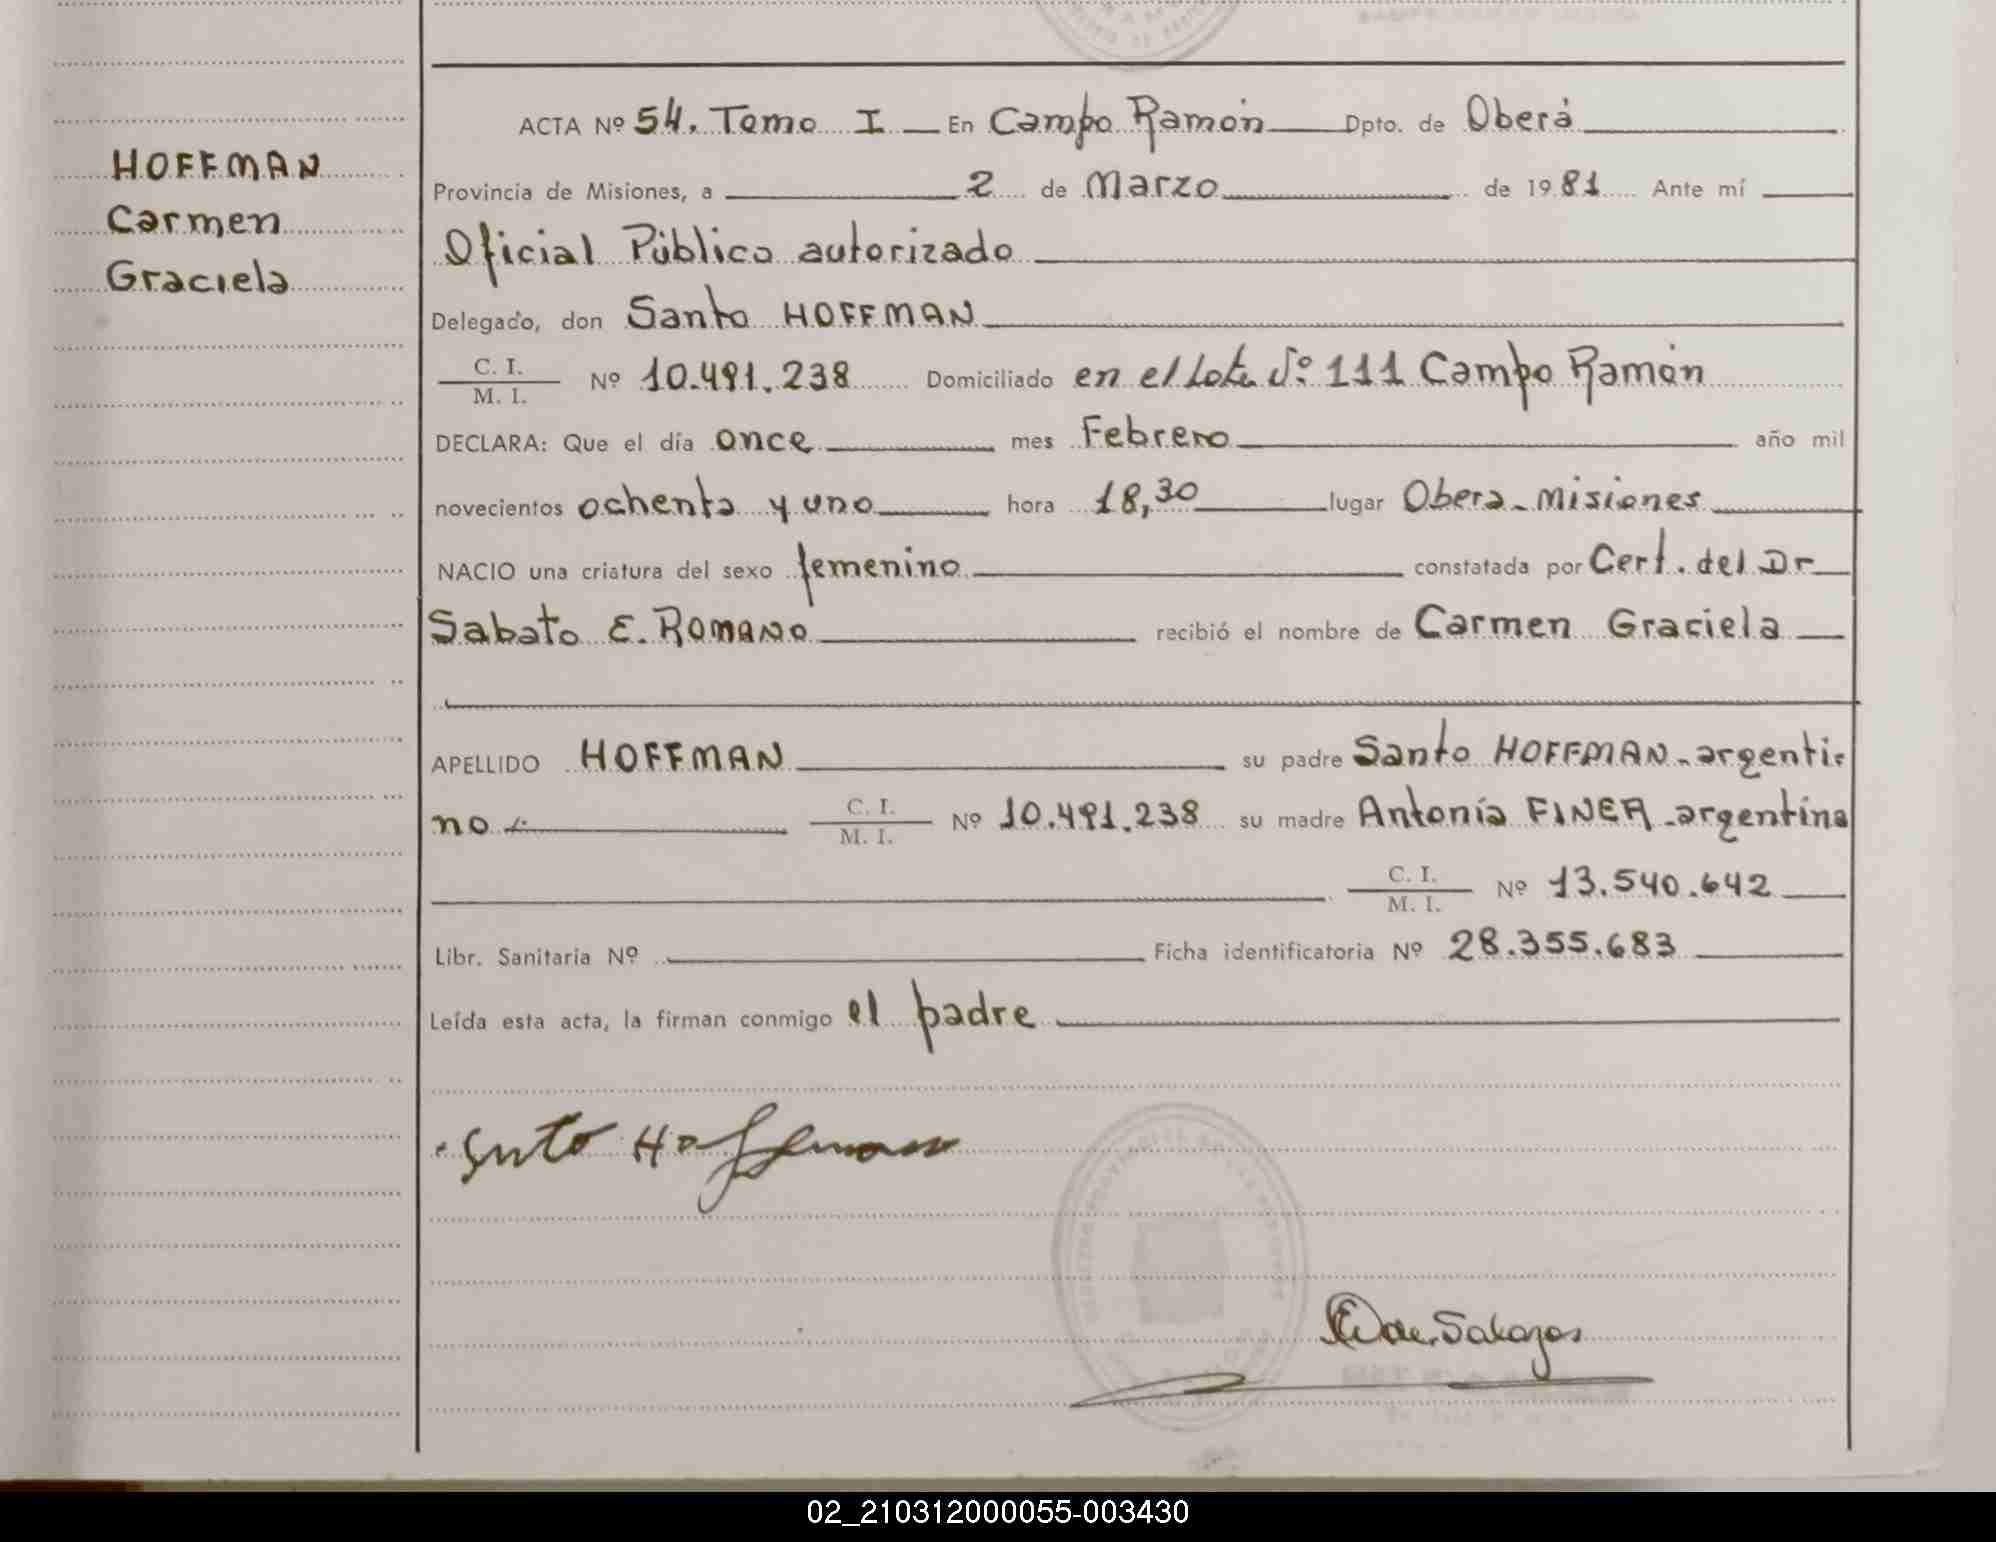 HOFFMAN
Carmen
Graciela
ACTA Nº 54. Tomo I En Campo Ramón Dpto. de Oberá
Provincia de Misiones, a 2 de Marzo de 1981 Ante mí
Oficial Público autorizado
Delegado, don Santo HOFFMAN
C. I.
M. I. Nº 10.491.238 Domiciliado en el Lote Nº 111 Campo Ramón
DECLARA: Que el día once mes Febrero año mil
novecientos ochenta y uno hora 18,30 lugar Obera - Misiones
NACIO una criatura del sexo femenino constatada por Cert. del Dr
Sabato E. ROMANO recibió el nombre de Carmen Graciela
APELLIDO HOFFMAN su padre Santo HOFFMAN - argenti-
no.- C. I.
M. I. Nº 10.491.238 su madre Antonía FINER - argentina
C. I.
M. I. Nº 13.540.642
Libr. Sanitaria Nº Ficha identificatoria Nº 28.355.683
Leída esta acta, la firman conmigo el padre
Santo Hoffman
de
02_210312000055-003430